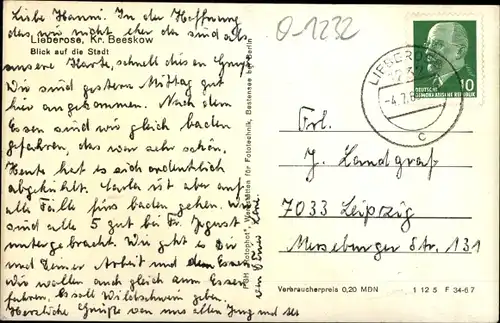 O-1232
Liebe Hanni! In der Hoffnung
das wir nicht eher da sind als
Lieberose, Kr. Beeskow
Blick auf die Stadt
unsere Karte, schnell diesen Gruß.
Wir sind gestern Mittag gut
hier angekommen. Nach dem
Essen sind wir gleich baden
gefahren, das war sehr schön.
Heute hat es sich ordentlich
abgekühlt. ist aber auf
alle Fälle fürs baden gehen. Wir
sind alle 5 gut bei Fr.
untergebracht. Wie geht es Dir
und Deiner Arbeit und dem Essen
Wir wollen auch gleich zum Essen
fahren. Es soll Wildschwein geben.
Herzliche Grüße von uns allen
von Deiner
PGH "Rotophot", Werkstätten für Fototechnik, Bestensee bei Berlin
LIEBEROSE
-4.7.
c
DEUTSCHE
DEMOKRATISCHE REPUBLIK
10
Frl.
J. Landgraf
7033 Leipzig
Merseburger Str. 131
Verbraucherpreis 0,20 MDN
1 12 5 F 34-67